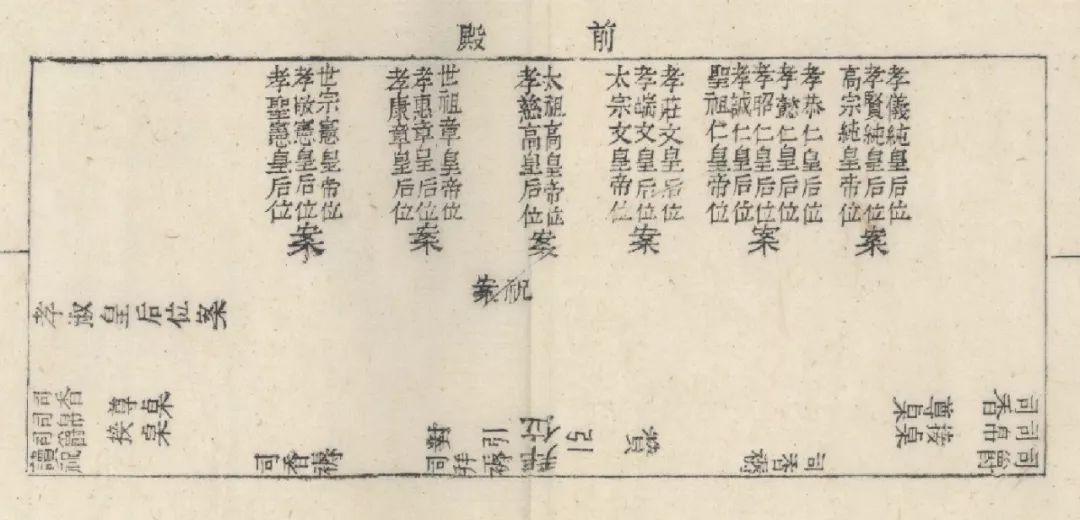 前殿
孝儀純皇后位
孝賢純皇后位
高宗純皇帝位
案
孝恭仁皇后位
孝懿仁皇后位
孝昭仁皇后位
孝誠仁皇后位
聖祖仁皇帝位
案
孝莊文皇后位
孝端文皇后位
太宗文皇帝位
案
太祖高皇帝位
孝慈高皇后位
案
世祖章皇帝位
孝惠章皇后位
孝康章皇后位
案
世宗憲皇帝位
孝敬憲皇后位
孝聖憲皇后位
案
祝案
孝淑皇后位案
司香
司帛
司爵
尊桌
接桌
司香
司帛
司爵
讀祝
尊桌
接桌
司香褥
贊引
對引
司拜褥
司香褥